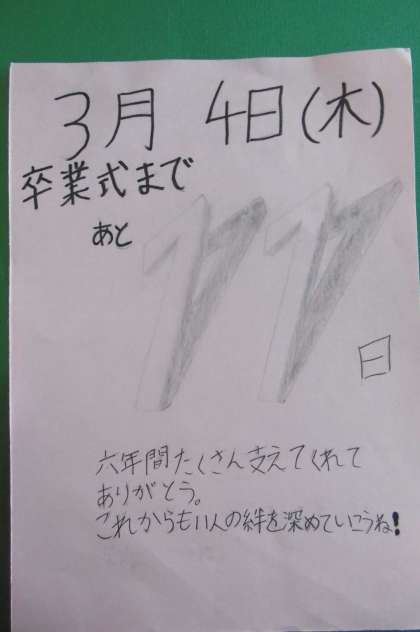 3月 4日(木)
卒業式まで
あと
11
日
六年間たくさん支えてくれて
ありがとう。
これからも11人の絆を深めていこうね!